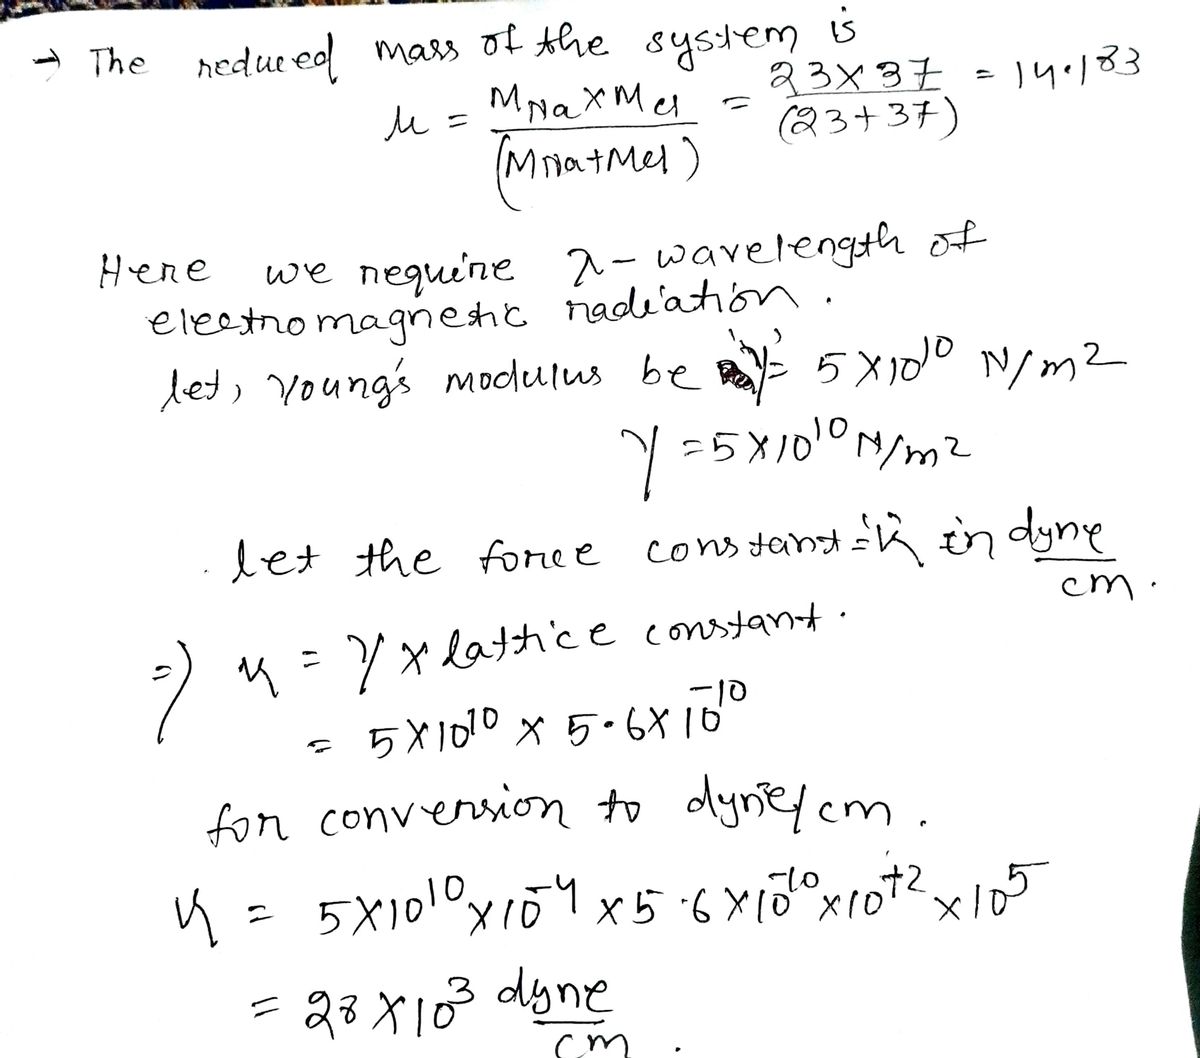 → The reduced mass of the system is
μ = M Na × M Cl / (M Na + M Cl) = 23 × 37 / (23 + 37) = 14.183
Here we require λ - wavelength of
electromagnetic radiation.
let, Young's modulus be 'γ' = 5 × 10^10 N/m2
γ = 5 × 10^10 N/m2
let the force constant = 'K' in dyne/cm.
=) K = γ × lattice constant.
= 5 × 10^10 × 5.6 × 10^-10
for conversion to dyne/cm.
K = 5 × 10^10 × 10^-4 × 5.6 × 10^-10 × 10^+2 × 10^5
= 28 × 10^3 dyne/cm.